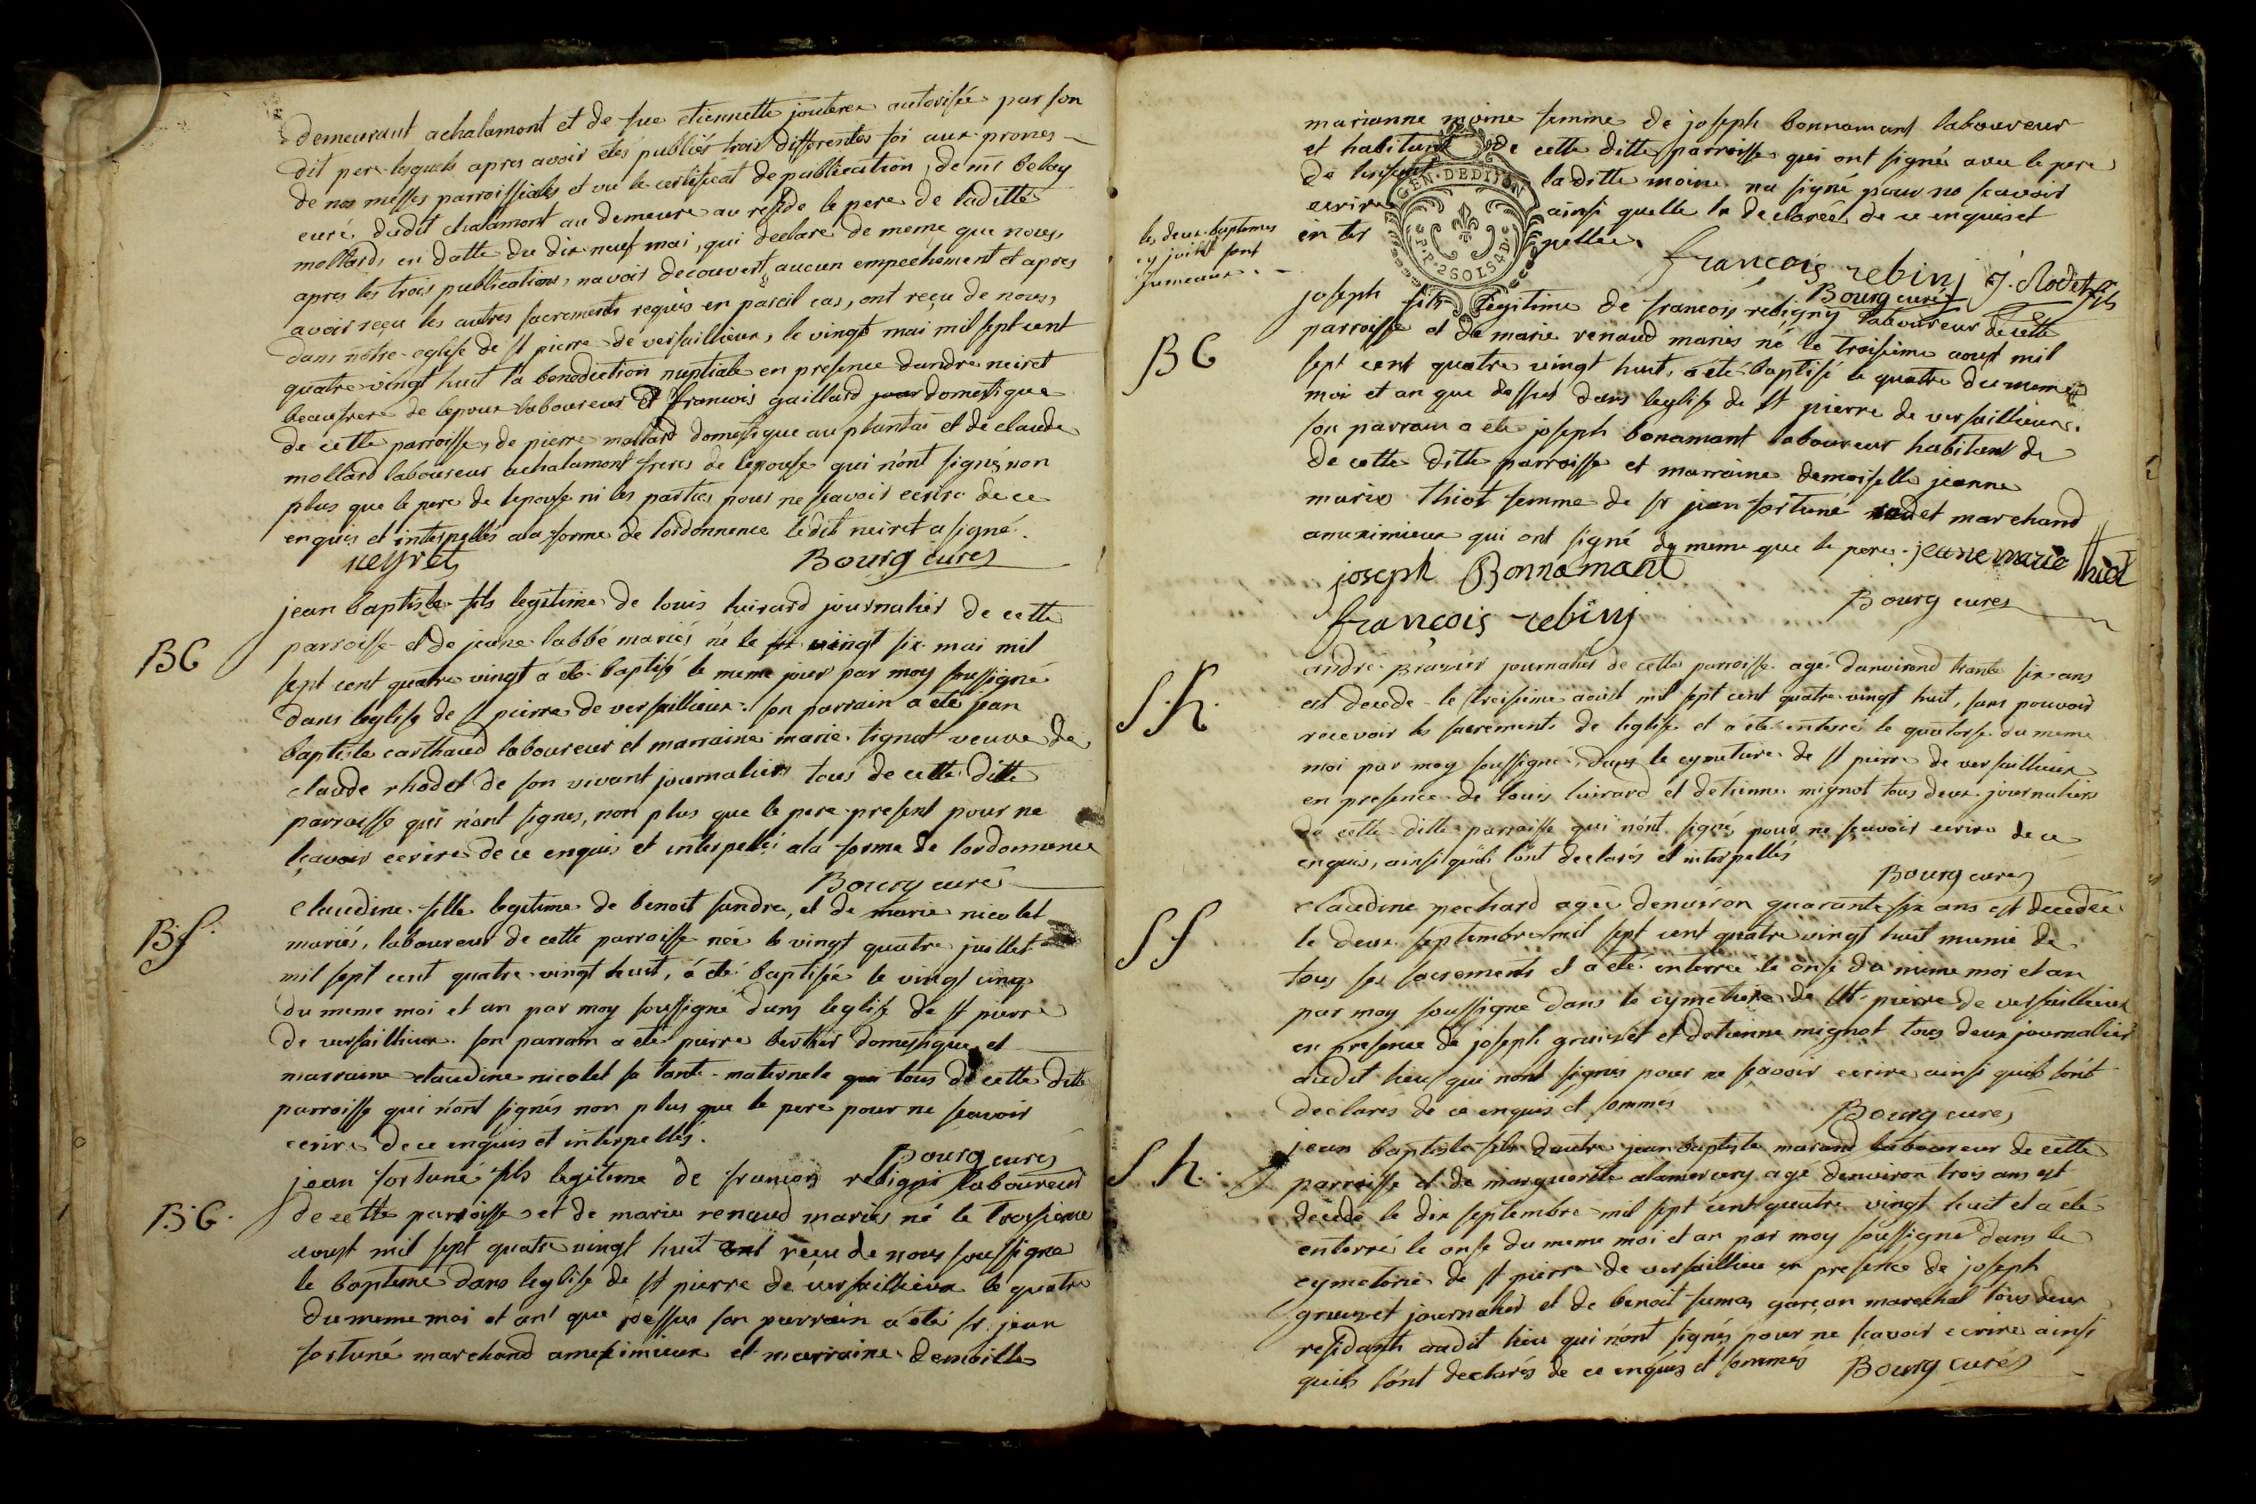 demeurant a chalamont et de feue etiennette jouterex autorisée par son
dit pere lesquels apres avoir etés publiés trois differentes foi aux prones
de nos messes parroissiales et vu le certificat de publication, de mr beloy
curé dudit chalamont au demeure au reside le pere de laditte
mollard, en datte du dix neuf mai, qui declare de meme que nous,
apres les trois publications, navoir decouvert aucun empechement et apres
avoir reçu les autres sacrements requis en pareil cas, ont reçu de nous,
dans nôtre eglise de st pierre de versaillieux, le vingt mai mil sept cent
quatre vingt huit la benediction nuptiale en presence dandré neiret
beaufrere de lepoux laboureur et francois gaillard domestique
de cette parroisse, de pierre mollard domestique au plantai et de claude
mollard laboureur achalamont freres de lepouse qui n'ont signé, non
plus que le pere de lepouse ni les parties pour ne scavoir ecrire de ce
enquis et interpellés ala forme de lordonnence ledit neiret a signé.
neyret Bourg curé
jean baptiste fils legitime de louis luirard journalier de cette
BG
parroisse et de jeane labbé mariés né le vingt six mai mil
sept cent quatre vingt á eté baptisé le meme jour par moy soussigné
dans leglise de st pierre de versaillieux. son parrain a eté jean
baptiste carthaud laboureur et marraine marie tignat veuve de
claude rhodet de son vivant journalier tous de cette ditte
parroisse qui n'ont signes, non plus que le pere present pour ne
sçavoir ecrire de ce enquis et interpellé ala forme de lordonnence
Bourg curé
B.f.
claudine fille legitime de benoit fandre, et de marie nicolet
mariés, laboureur de cette parroisse née le vingt quatre juillet
mil sept cent quatre vingt huit, á eté baptisée le vingt cinq
du meme moi et an par moy soussigné dans leglise de st pierre
de versaillieux. son parrain a eté pierre berthier domestique et
marraine claudine nicolet sa tante maternele tous de cette ditte
parroisse qui n'ont signés non plus que le pere pour ne scavoir
ecrire de ce enquis et interpellés.
Bourg curé
jean fortuné fils legitime de francois rebigni laboureur
B.G.
de cette parroisse et de marie renaud mariés né le troisieme
aoust mil sept quatre vingt huit reçu de nous soussigné
le baptême dans leglise de st pierre de versaillieux le quatre
du meme moi et an que dessus son parrain a été sr jean
fortuné marchand ameximieux et marraine demoiselle
marianne moine femme de joseph bonnamant laboureur
et habitant de cette ditte parroisse qui ont signé avec le pere
de lenfant laditte moine na signé pour ne scavoir
ecrire ainsi quelle la declarée de ce enquis et
inter pellée.
GEN. DE DIJON
P.P. 2 SOLS 4 D.
francois rebinj J. Rodet fils
Bourg curé
les deux baptemes
cy joint sont
jumeaux.
joseph fils legitime de francois rebigny laboureur de cette
BG
parroisse et de marie renaud mariés né le troisieme aoust mil
sept cent quatre vingt huit, a été baptisé le quatre du meme
moi et an que dessus dans leglise de st pierre de versaillieux.
son parrain a ete joseph bonamant laboureur habitant de
de cette ditte parroisse et marraine demoiselle jeanne
marie thiot femme de sr jean fortuné rodet marchand
ameximieux qui ont signé de meme que le pere. jeane marie thiot
joseph Bonnamant
Bourg curé
françois rebinj
S.h.
andré brazier journalier de cette parroisse agé danvirond trante six ans
est decede le treisieme aoust mil sept cent quatre vingt huit, sans pouvoir
recevoir les sacrements de leglise et a été enterré le quatorse du meme
moi par moy soussigné dans le cymetiere de st pierre de versaillieux
en presence de louis luirard et detienne mignot tous deux journaliers
de cette ditte parroisse qui n'ont signés pour ne scavoir ecrire de ce
enquis, ainsi quils l'ont declarés et interpellés
Bourg curé
Sf
claudine pechard agée denviron quarante six ans est decedée
le deux septembre mil sept cent quatre vingt huit munie de
tous ses sacrements et a été enterrée le onse du meme moi et an
par moy soussigne dans le cymetiere de st pierre de versaillieux
en presence de joseph gruizet et detienne mignot tous deux journalier
dudit lieu qui n'ont signés pour ne scavoir ecrire ainsi quils l'ont
declarés de ce enquis et sommes
Bourg curé
S h.
jean baptiste fils dautre jean baptiste marand laboureur de cette
parroisse et de marguerite alamercery agé denviron trois ans est
decedé le dix septembre mil sept cent quatre vingt huit et a eté
enterré le onse du meme moi et an par moy soussigné dans le
cymetiere de st pierre de versaillieu en presence de joseph
gruizet journalier et de benoit fumas garçon marechal tous deux
residants audit lieu qui n'ont signés pour ne scavoir ecrire ainsi
quils l'ónt declarés de ce enquis et sommés Bourg curé